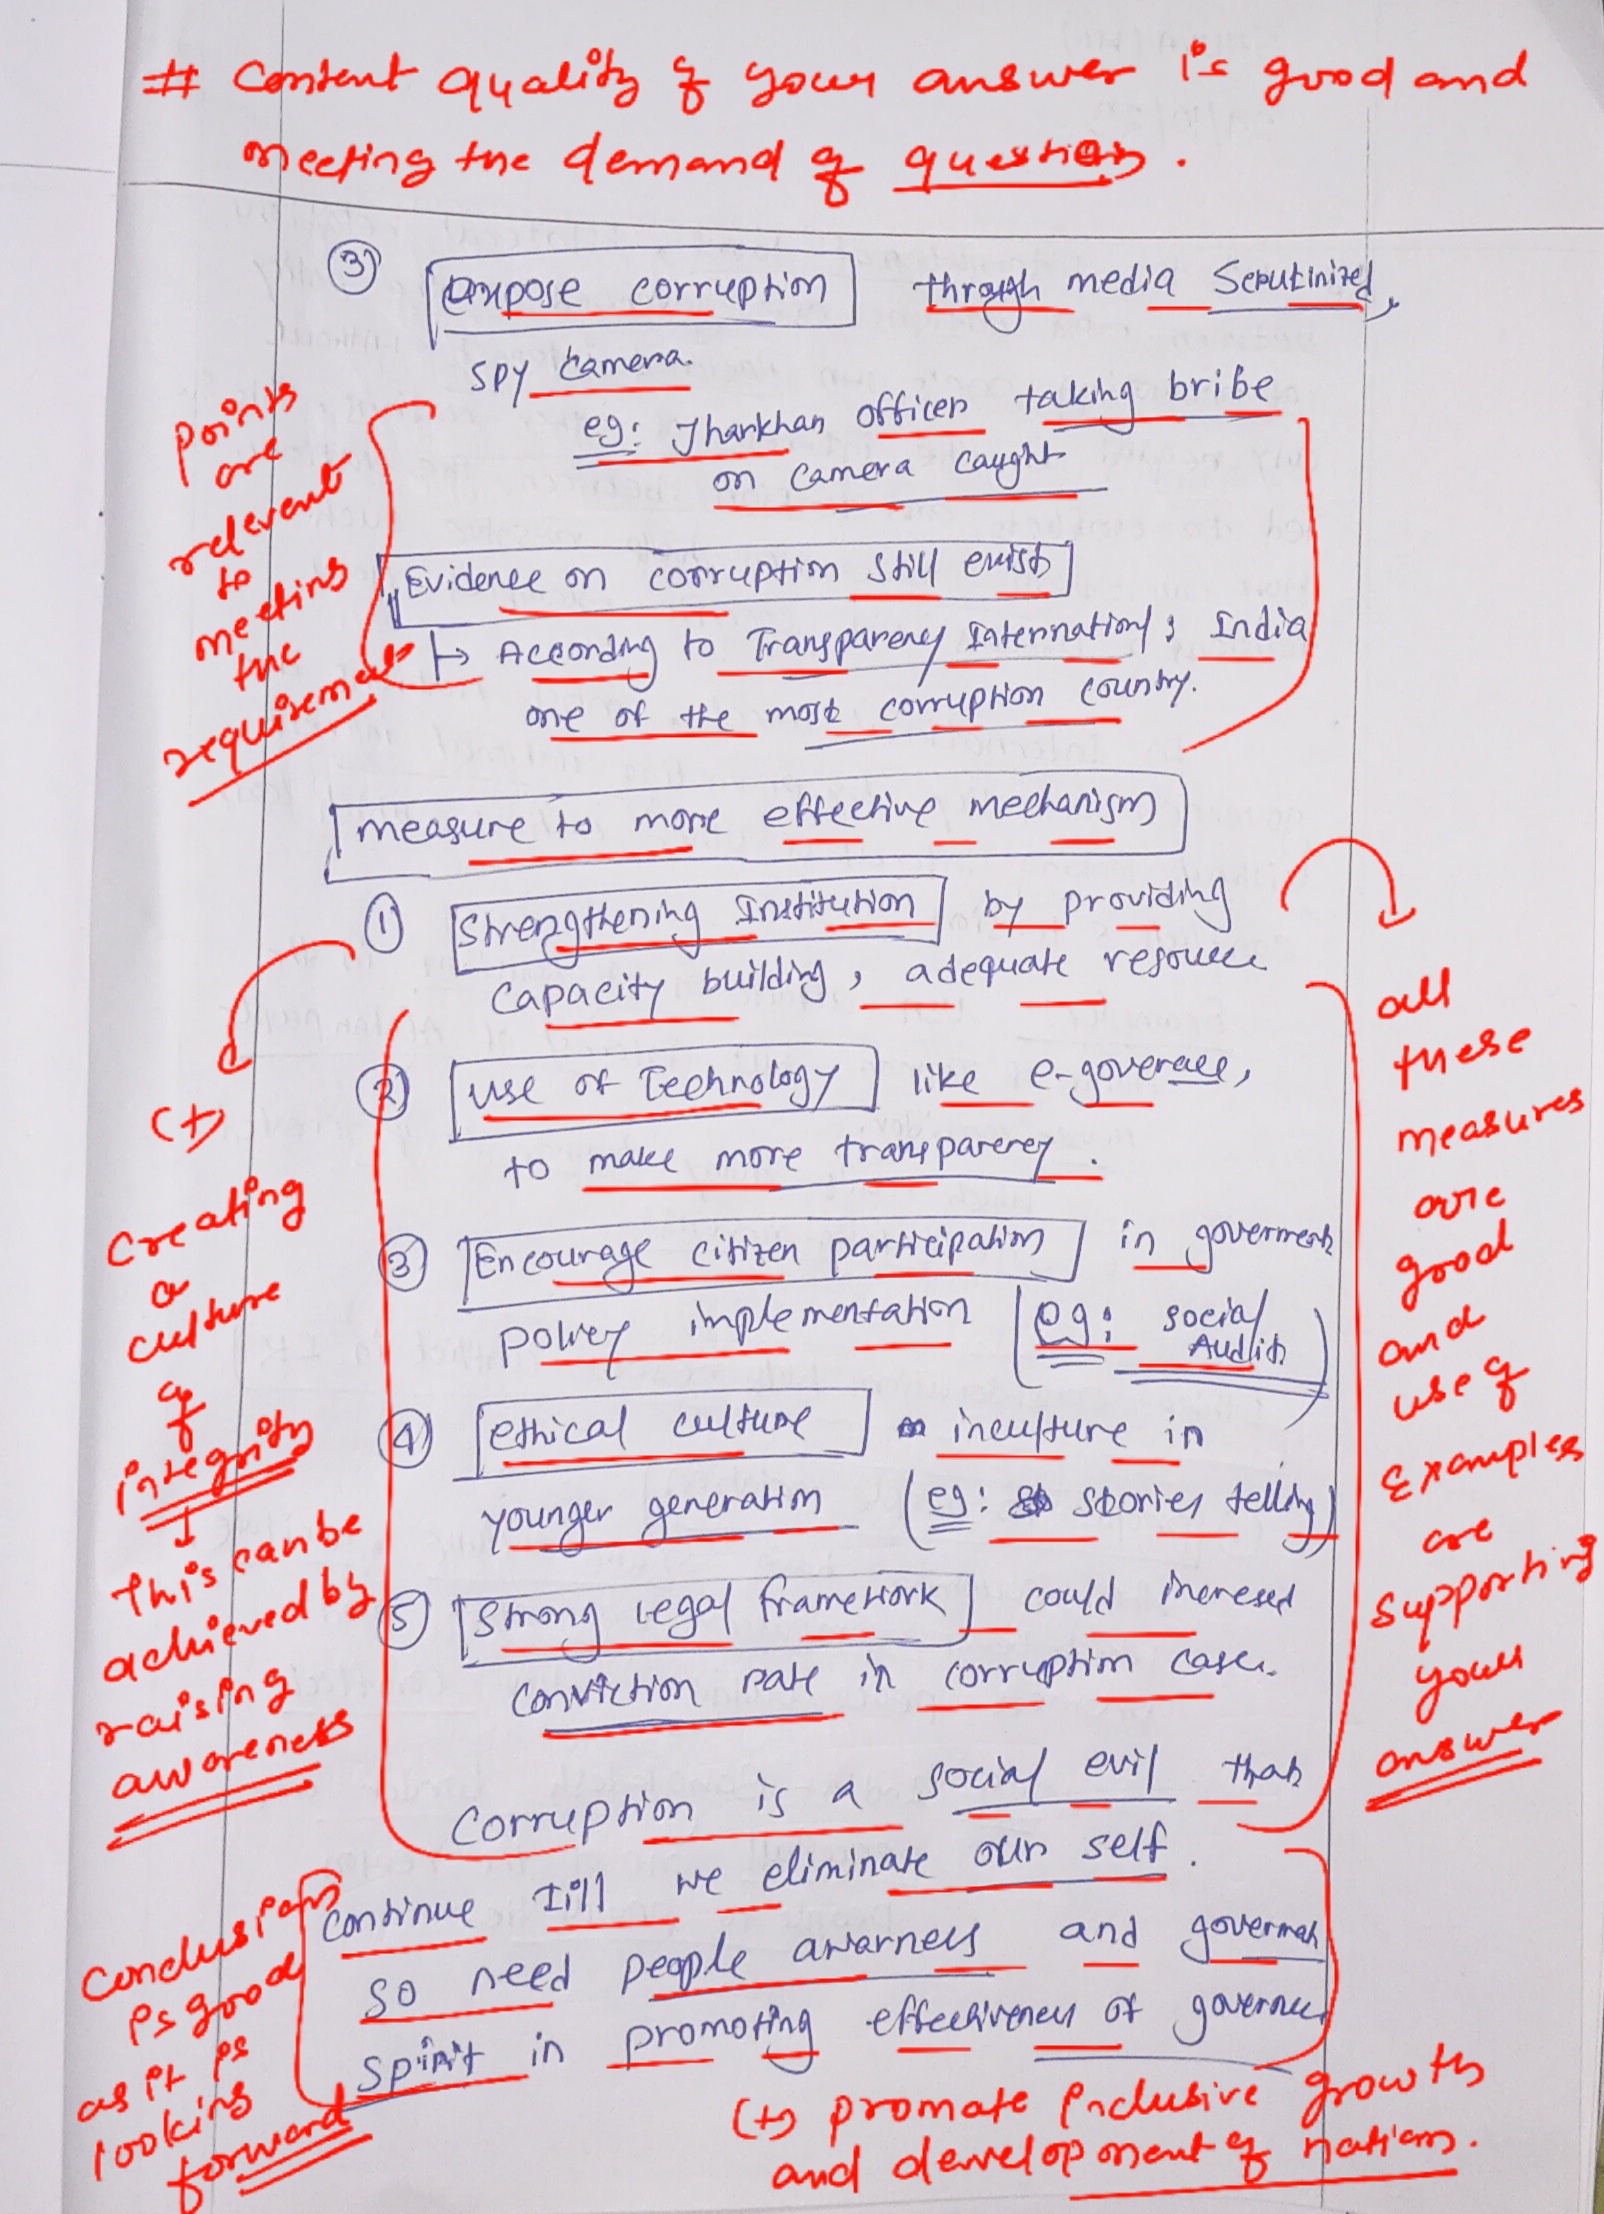 # Content quality of your answer is good and
meeting the demand of question.
③ expose corruption through media Scrutinized,
spy camera.
eg: Jharkhan officer taking bribe
on camera caught
points
are
relevent
to
meeting
the
requirement
Evidence on corruption still exist
↳ According to Transparency International; India
one of the most corruption country.
measure to more effective mechanism
① Strengthening Institution by providing
capacity building, adequate resource
② use of Technology like e-goverace,
to make more transparency.
③ Encourage citizen participation in goverment
policy implementation (eg: social
Audits)
④ ethical culture inculture in
younger generation (eg: stories telling)
⑤ Strong Legal framework could incresed
conviction rate in corruption case.
(+)
Creating
a
culture
of
integrity
↓
This can be
achieved by
raising
awareness
all
these
measures
are
good
and
use of
Examples
are
supporting
your
answer
Corruption is a social evil that
continue till we eliminate our self.
so need people awarness and goverment
spirit in promoting effectiveness of governce
Conclusion
is good
as it is
looking
forward
(+) promote inclusive growth
and development of nation.